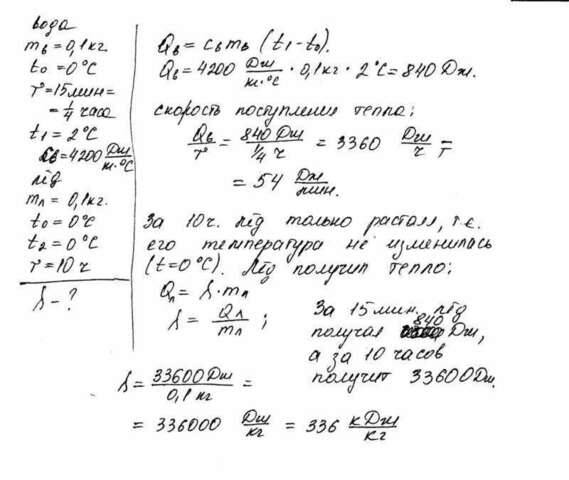 вода
mв = 0,1 кг.
t0 = 0°C
τ = 15 мин =
= 1/4 часа
t1 = 2°C
cв = 4200 Дж/кг·°C
лёд
mл = 0,1 кг.
t0 = 0°C
t2 = 0°C
τ = 10 ч
λ - ?
Qв = cв mв (t1 - t0).
Qв = 4200 Дж/кг·°C · 0,1 кг · 2°C = 840 Дж.
скорость поступления тепла:
Qв/τ = 840 Дж / 1/4 ч = 3360 Дж/ч =
= 54 Дж/мин.
За 10 ч. лёд только растаял, т.е.
его температура не изменилась
(t = 0°C). Лёд получил тепло:
Qл = λ · mл
λ = Qл/mл ;
За 15 мин. лёд
получал 840 Дж,
а за 10 часов
получит 33600 Дж.
λ = 33600 Дж / 0,1 кг =
= 336000 Дж/кг = 336 кДж/кг